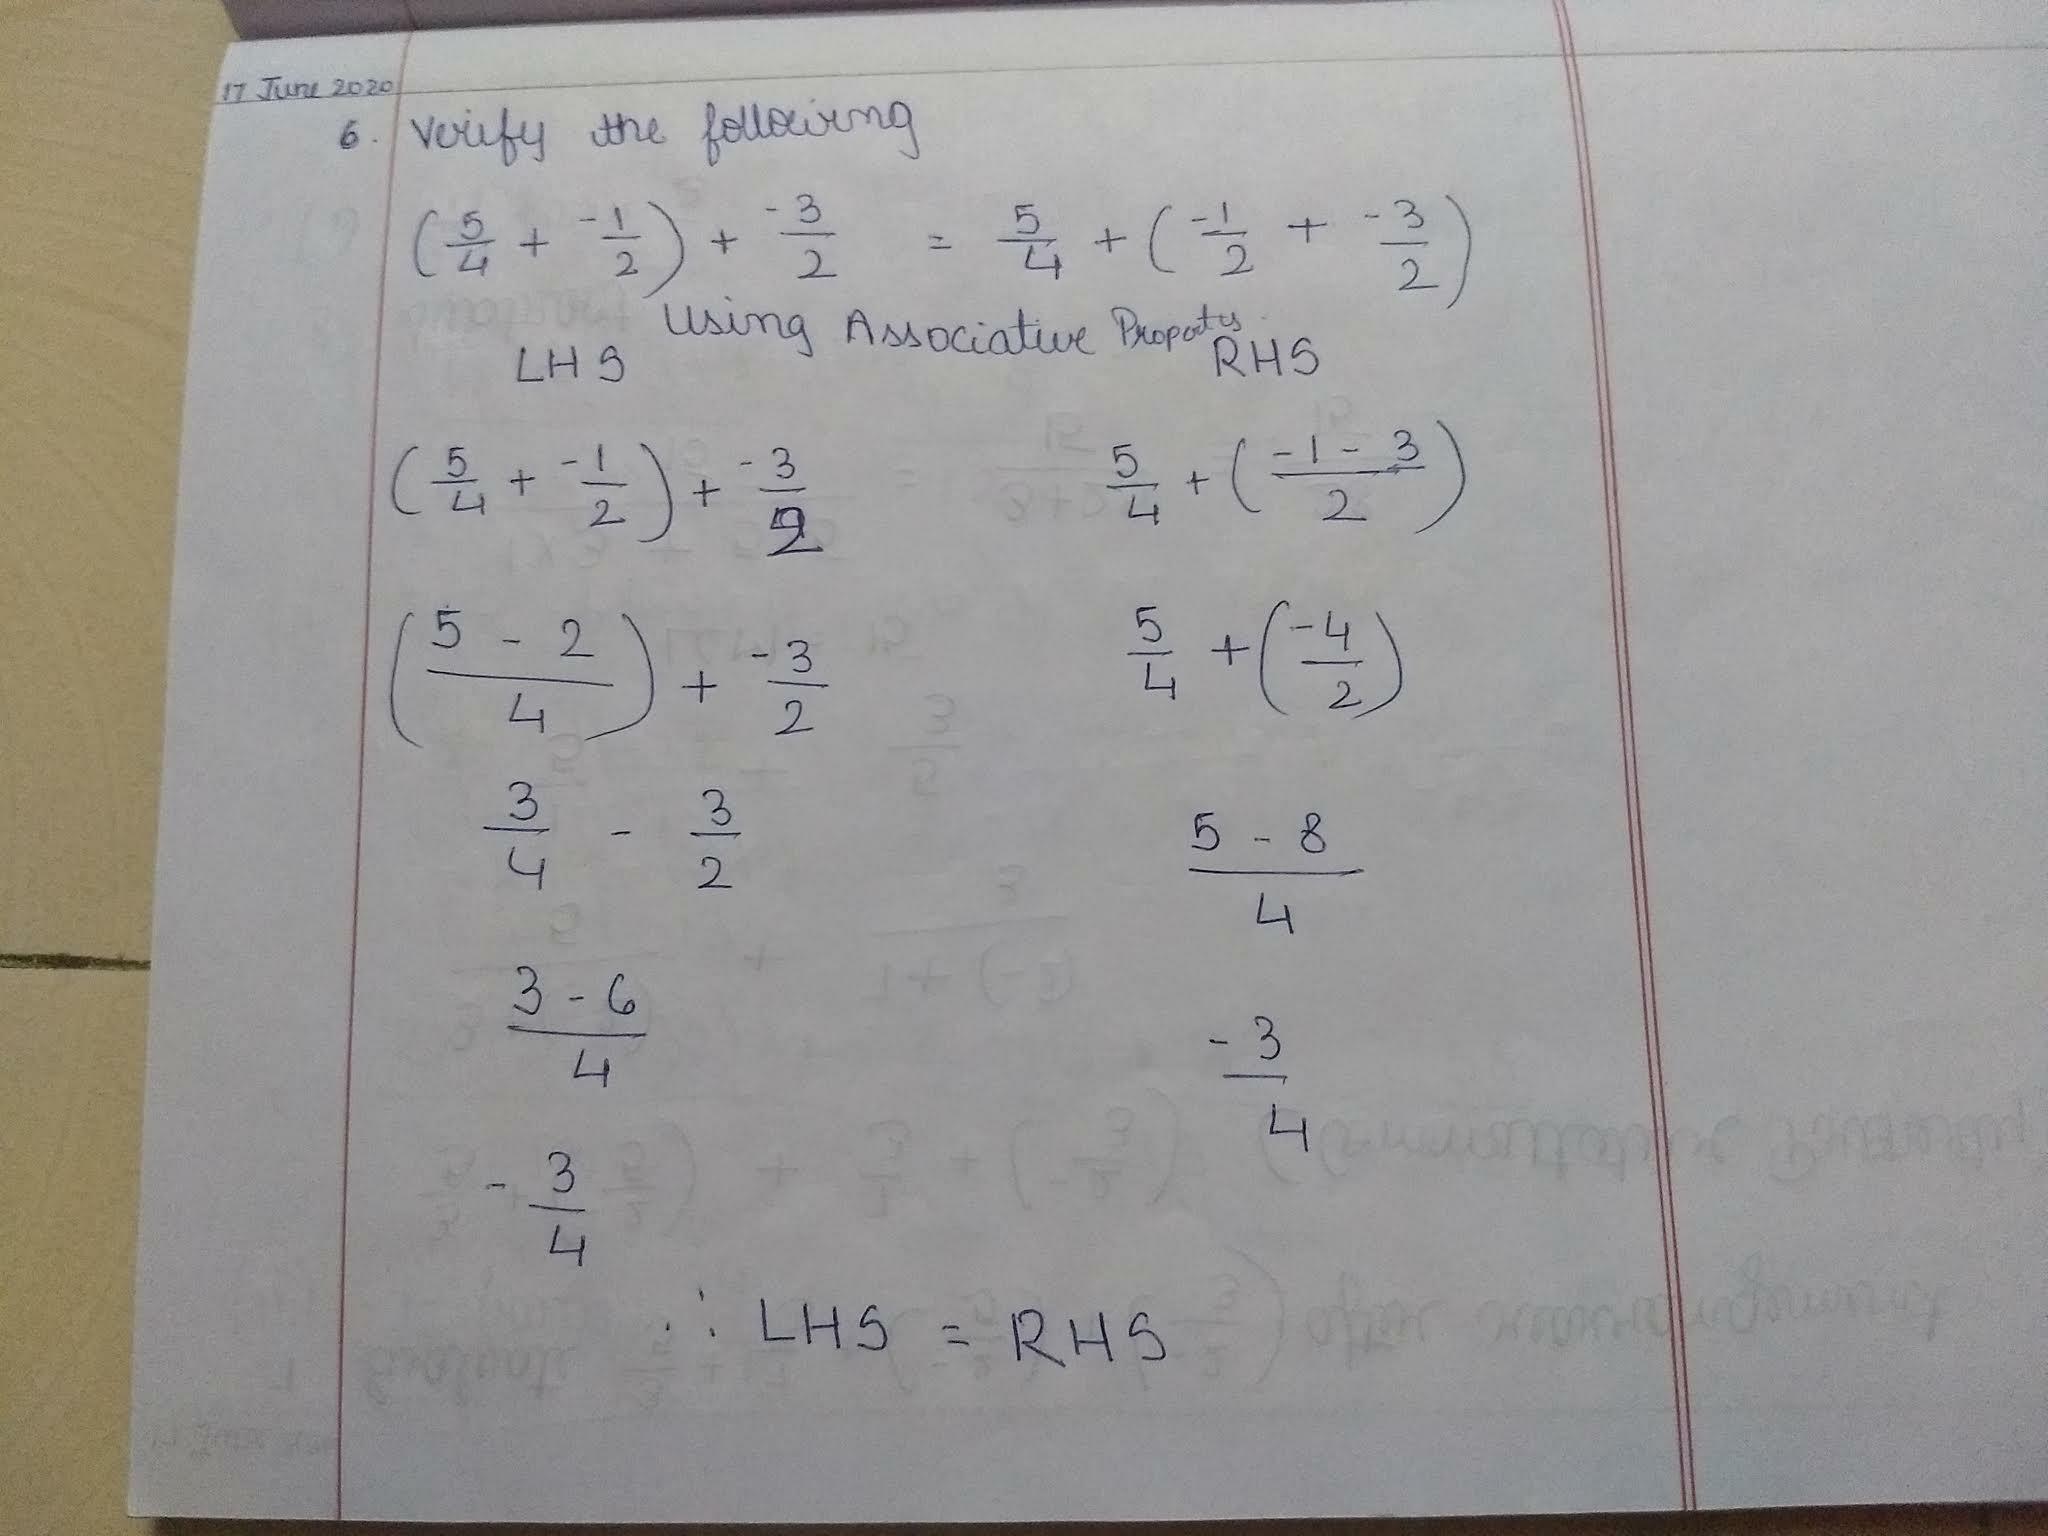 17 June 2020
6. Verify the following
(5/4 + -1/2) + -3/2 = 5/4 + (-1/2 + -3/2)
Using Associative Property.
LHS RHS
(5/4 + -1/2) + -3/2 5/4 + (-1-3/2)
(5 - 2/4) + -3/2 5/4 + (-4/2)
3/4 - 3/2 5 - 8/4
3 - 6/4 -3/4
- 3/4
∴ LHS = RHS